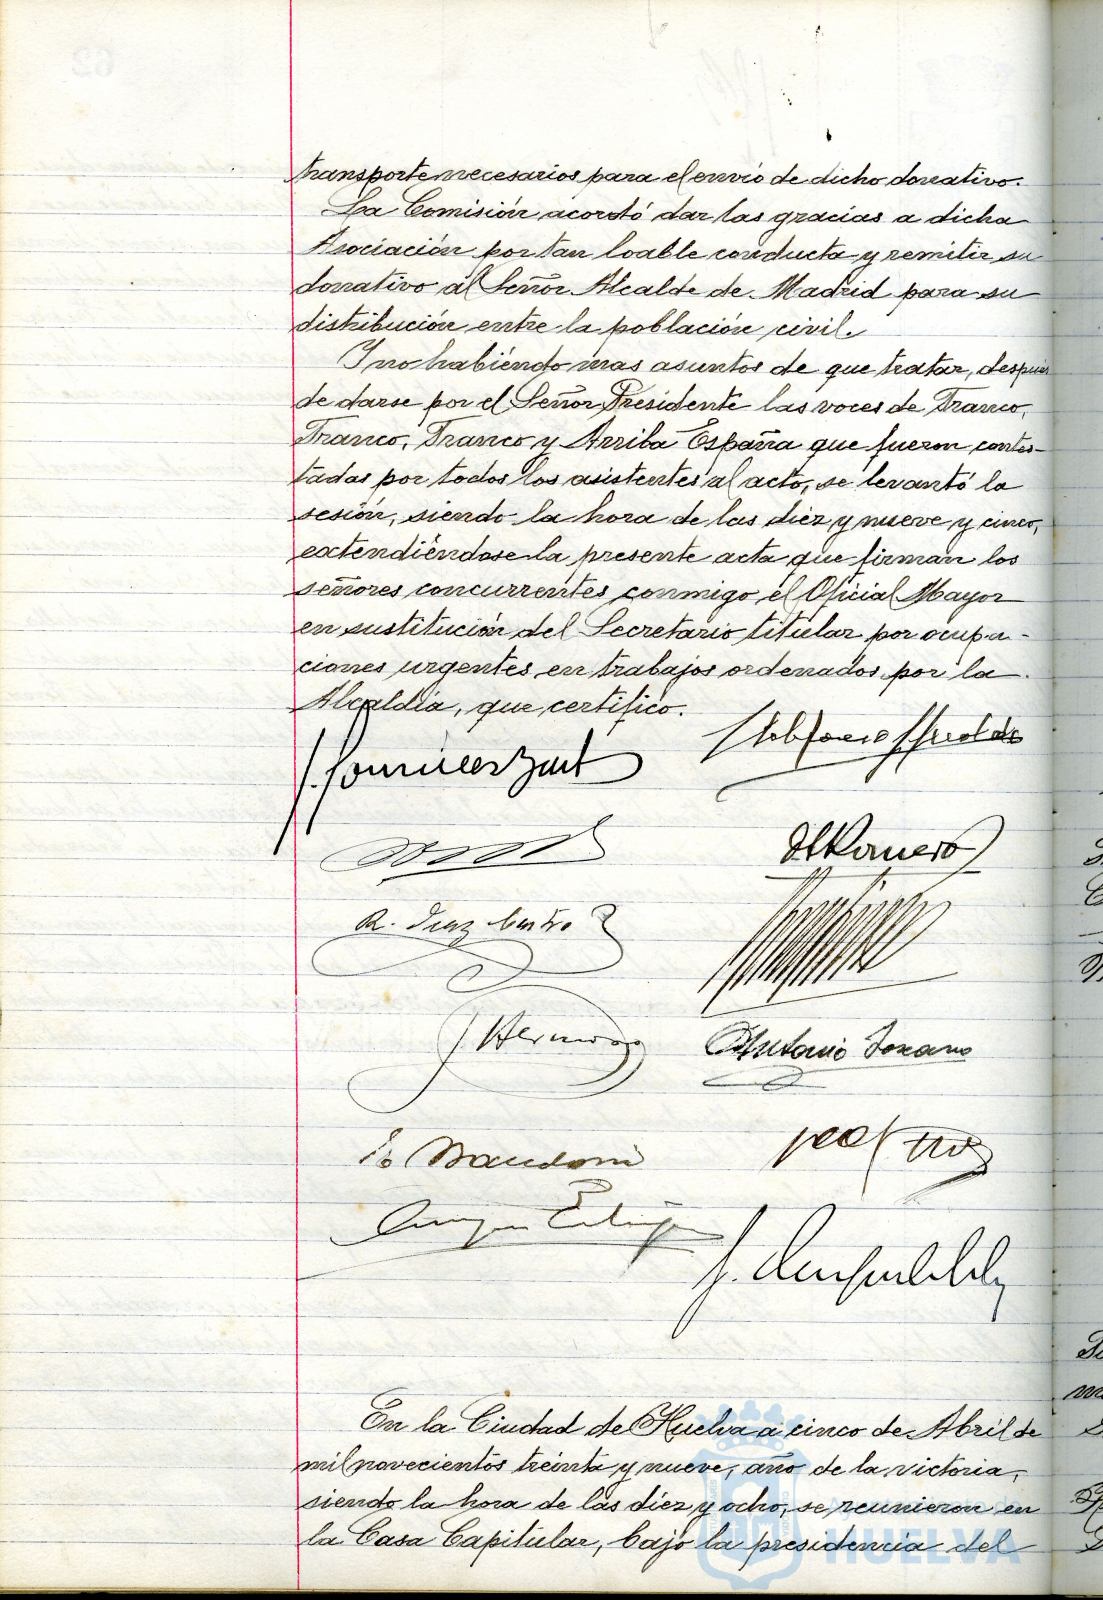 transporte necesarios para el envío de dicho donativo.
La Comisión acordó dar las gracias a dicha
Asociación por tan loable conducta y remitir su
donativo al Señor Alcalde de Madrid para su
distribución entre la población civil.
Y no habiendo mas asuntos de que tratar, después
de darse por el Señor Presidente las voces de Franco,
Franco, Franco y Arriba España que fueron contes-
tadas por todos los asistentes al acto, se levantó la
sesión, siendo la hora de las diez y nueve y cinco,
extendiéndose la presente acta que firman los
señores concurrentes conmigo el Oficial Mayor
en sustitución del Secretario titular por ocupa-
ciones urgentes en trabajos ordenados por la
Alcaldía, que certifico.
Romero
R. Diaz
Antonio Lozano
En la Ciudad de Huelva a cinco de Abril de
mil novecientos treinta y nueve, año de la victoria,
siendo la hora de las diez y ocho, se reunieron en
la Casa Capitular, bajo la presidencia del
HUELVA